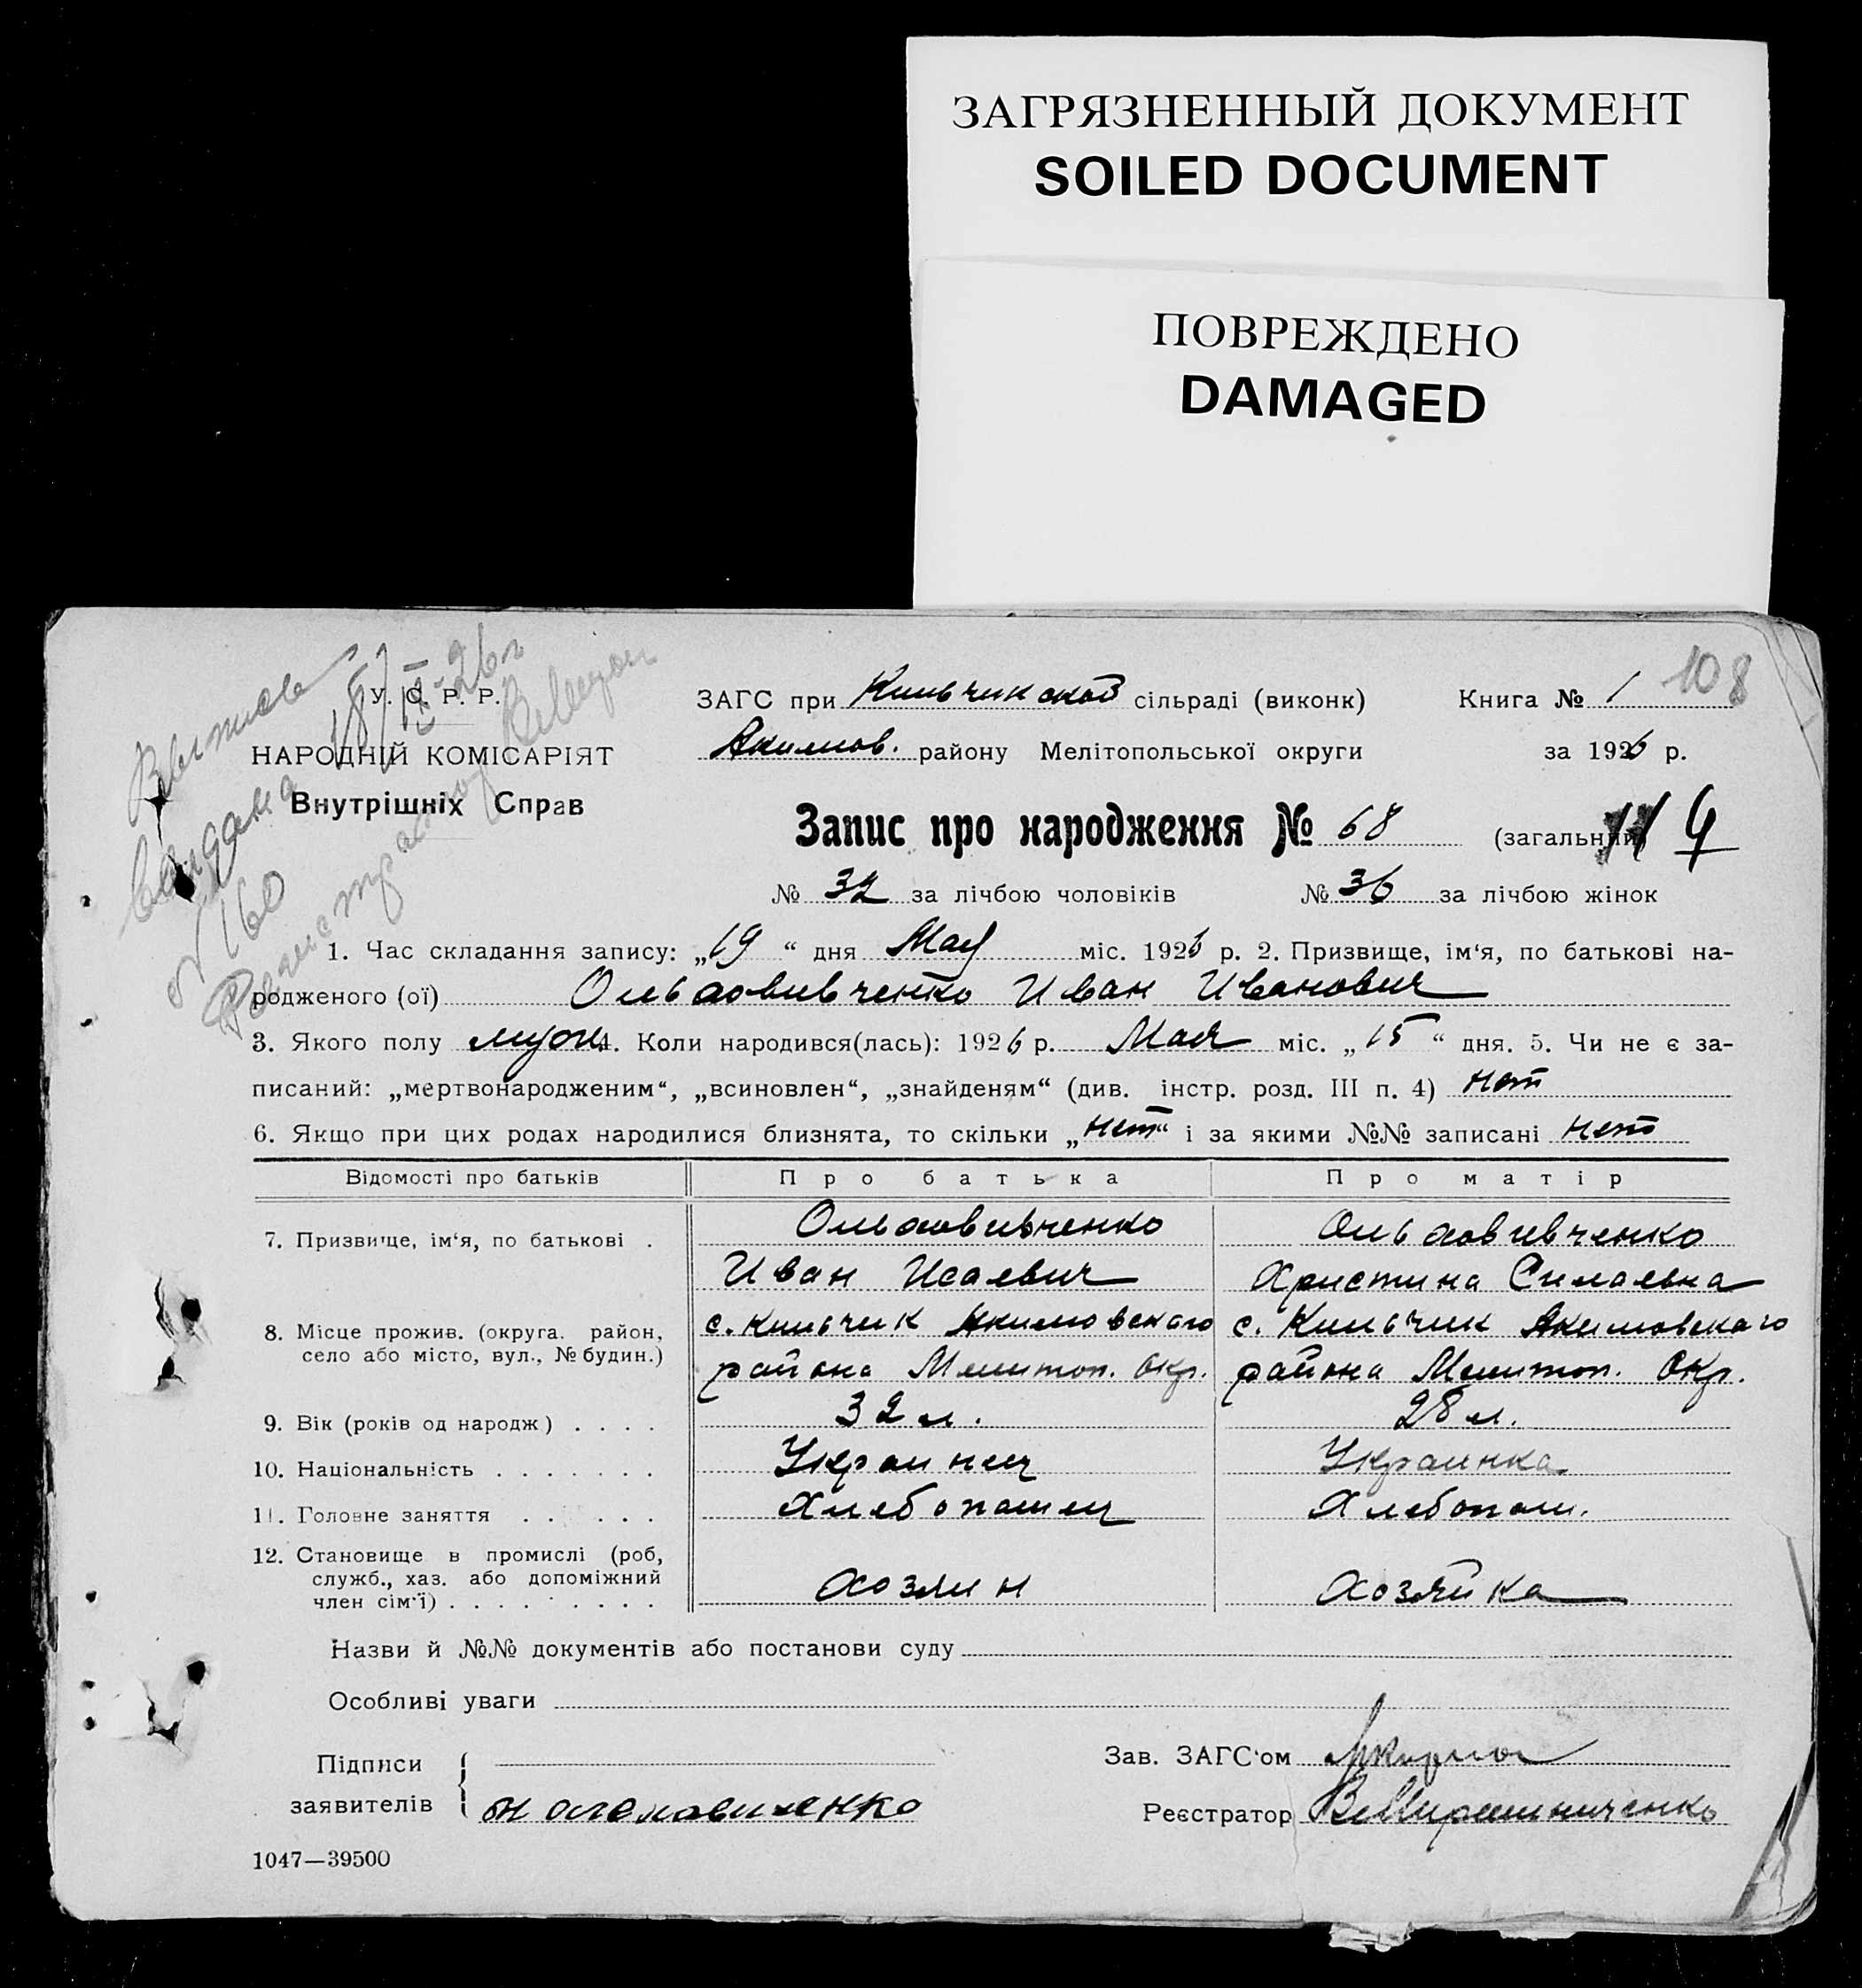 ЗАГРЯЗНЕННЫЙ ДОКУМЕНТ
SOILED DOCUMENT
ПОВРЕЖДЕНО
DAMAGED
108
Выпись выдана 18/
№ 160
У. С. Р. Р.
НАРОДНІЙ КОМІСАРІЯТ
Внутрішніх Справ
ЗАГС при Кильчикской сільраді (виконк) Книга № 1
Акимов. району Мелітопольської округи за 1926 р.
Запис про народження № 68 (загальний)
№ 32 за лічбою чоловіків № 36 за лічбою жінок
1. Час складання запису: „19“ дня Мая міс. 1926 р. 2. Призвище, ім‘я, по батькові на-
родженого (ої) Иван Иванович
3. Якого полу 4. Коли народився(лась): 1926 р. Мая міс. „15“ дня. 5. Чи не є за-
писаний: „мертвонародженим“, „всиновлен“, „знайденям“ (див. інстр. розд. III п. 4) нет
6. Якщо при цих родах народилися близнята, то скільки „нет“ і за якими №№ записані нет
Відомості про батьків Про батька Про матір
7. Призвище, ім‘я, по батькові .
Иван Исаевич Христина Силаевна
8. Місце прожив. (округа. район, село або місто, вул., № будин.)
с. Кильчик Акимовского с. Кильчик Акимовского
района Мелитоп. Окр. района Мелитоп. Окр.
9. Вік (років од народж) . . . . 32 л. 28 л.
10. Національність . . . . . . . Украинец Украинка
11. Головне заняття . . . . . Хлебопашец Хлебопаш.
12. Становище в промислі (роб,
служб., хаз. або допоміжний
член сім‘ї) . . . . . . . . . Хозяин Хозяйка
Назви й №№ документів або постанови суду
Особливі уваги
Підписи
заявителів
Зав. ЗАГС‘ом
Реєстратор
1047—39500